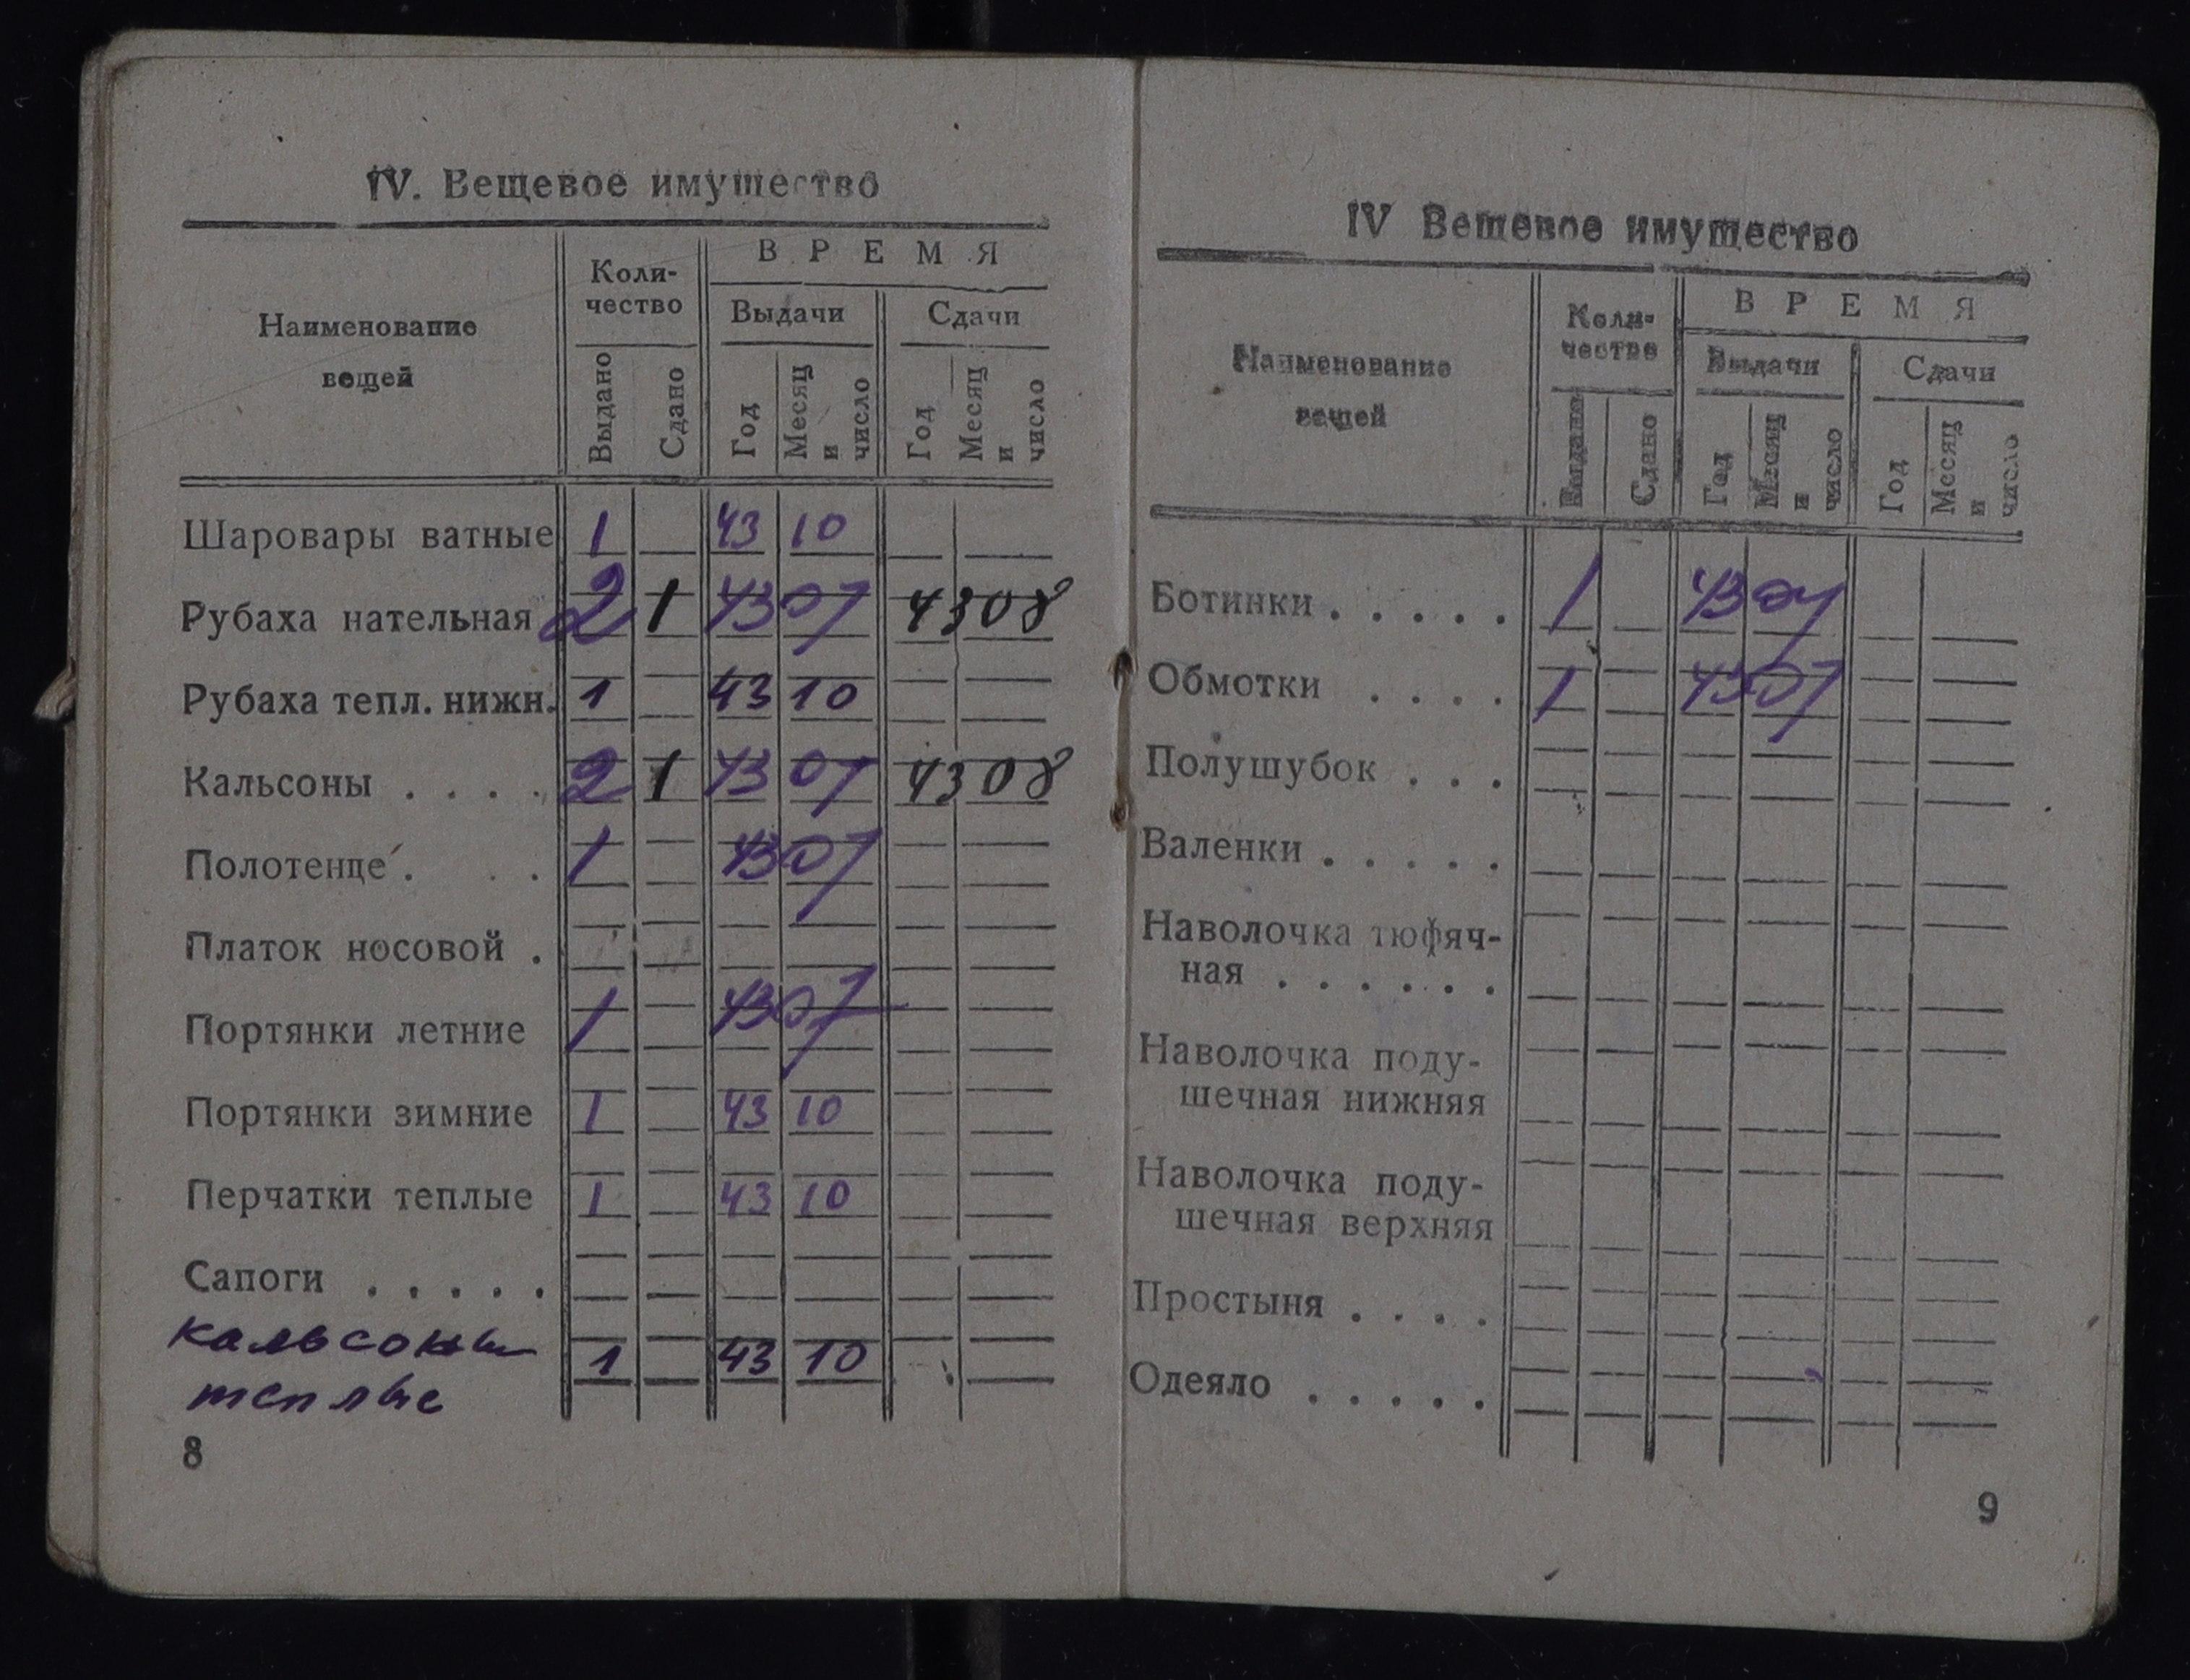 IV. Вещевое имущество
Наименование вещей
Количество
ВРЕМЯ
Выдачи
Сдачи
Выдано
Сдано
Год
Месяц и число
Год
Месяц и число
Шаровары ватные 1 43 10
Рубаха нательная 2 1 43 07 43 08
Рубаха тепл. нижн. 1 43 10
Кальсоны . . . . 2 1 43 07 43 08
Полотенце . . . 1 43 07
Платок носовой .
Портянки летние 1 43 07
Портянки зимние 1 43 10
Перчатки теплые 1 43 10
Сапоги . . . . .
кальсоны 1 43 10
теплые
8
IV Вещевое имущество
Наименование вещей
Количество
ВРЕМЯ
Выдачи
Сдачи
Выдано
Сдано
Год
Месяц и число
Год
Месяц и число
Ботинки . . . . . 1 43 07
Обмотки . . . . 1 43 07
Полушубок . . .
Валенки . . . . .
Наволочка тюфяч-
ная . . . . . .
Наволочка поду-
шечная нижняя
Наволочка поду-
шечная верхняя
Простыня . . . .
Одеяло . . . . .
9